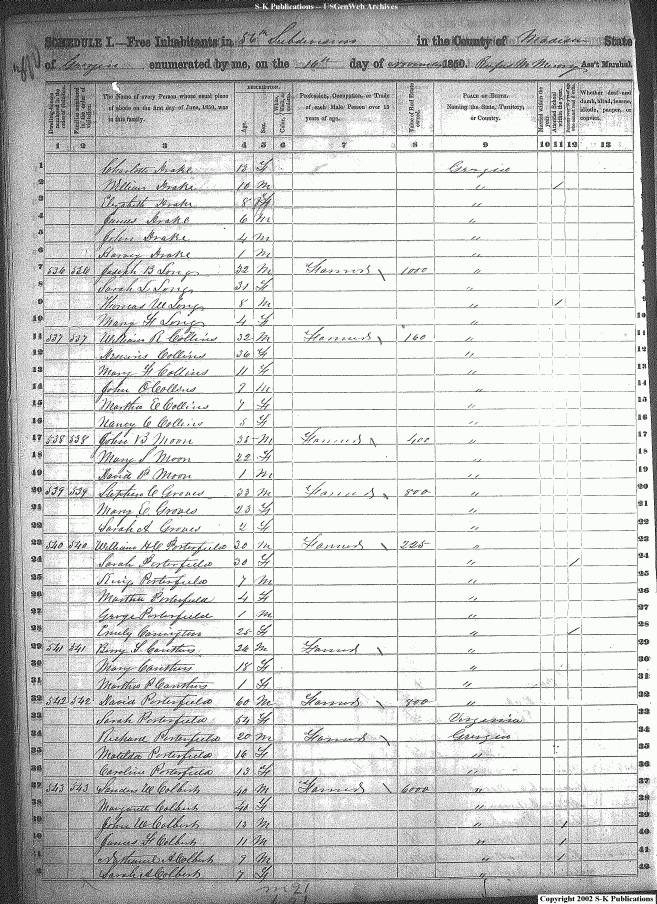 S-K Publications -- USGenWeb Archives
SCHEDULE I.—Free Inhabitants in 86th Subdivision in the County of Madison State
of Georgia enumerated by me, on the 16th day of November 1850. Ass't Marshal.
The Name of every Person whose usual place of abode on the first day of June, 1850, was in this family.
DESCRIPTION.
Age.
Sex.
Profession, Occupation, or Trade of each Male Person over 15 years of age.
Value of Real Estate owned.
PLACE OF BIRTH. Naming the State, Territory, or Country.
Married within the year.
Whether deaf and dumb, blind, insane, idiotic, pauper, or convict.
1 2 3 4 5 6 7 8 9 10 11 12 13
1 Charlotte Drake 13 F Georgia
2 William Drake 10 M " /
3 Elizabeth Drake 8 F "
4 James Drake 6 M "
5 John Drake 4 M "
6 Harvey Drake 1 M "
7 536 536 Joseph B Long 32 M Farmer 1000 "
8 Sarah L Long 31 F "
9 Thomas W Long 8 M " /
10 Mary F Long 4 F "
11 537 537 William R Collins 32 M Farmer 160 "
12 Collins 36 F "
13 Mary F Collins 11 F "
14 John O Collins 9 M "
15 Martha E Collins 7 F "
16 Nancy C Collins 5 F "
17 538 538 John B Moon 35 M Farmer 400 "
18 Mary S Moon 22 F "
19 David P Moon 1 M "
20 539 539 Stephen C Groves 33 M Farmer 800 "
21 Mary C Groves 23 F "
22 Sarah A Groves 2 F "
23 540 540 William H C Porterfield 30 M Farmer 225 "
24 Sarah Porterfield 30 F " /
25 King Porterfield 7 M "
26 Martha Porterfield 4 F "
27 George Porterfield 1 M "
28 Emily Carrington 25 F " /
29 541 541 Berry S Caruthers 26 M Farmer "
30 Mary Caruthers 18 F "
31 Martha P Caruthers 1 F "
32 542 542 David Porterfield 60 M Farmer 800 "
33 Sarah Porterfield 54 F Virginia
34 Richard Porterfield 20 M Farmer Georgia
35 Matilda Porterfield 16 F "
36 Caroline Porterfield 13 F "
37 543 543 Sanders W Colbert 40 M Farmer 6000 "
38 Margarett Colbert 40 F "
39 John W Colbert 13 M " /
40 James F Colbert 11 M " /
41 Nathaniel A Colbert 9 M " /
42 Sarah A Colbert 7 F "
Copyright 2002 S-K Publications